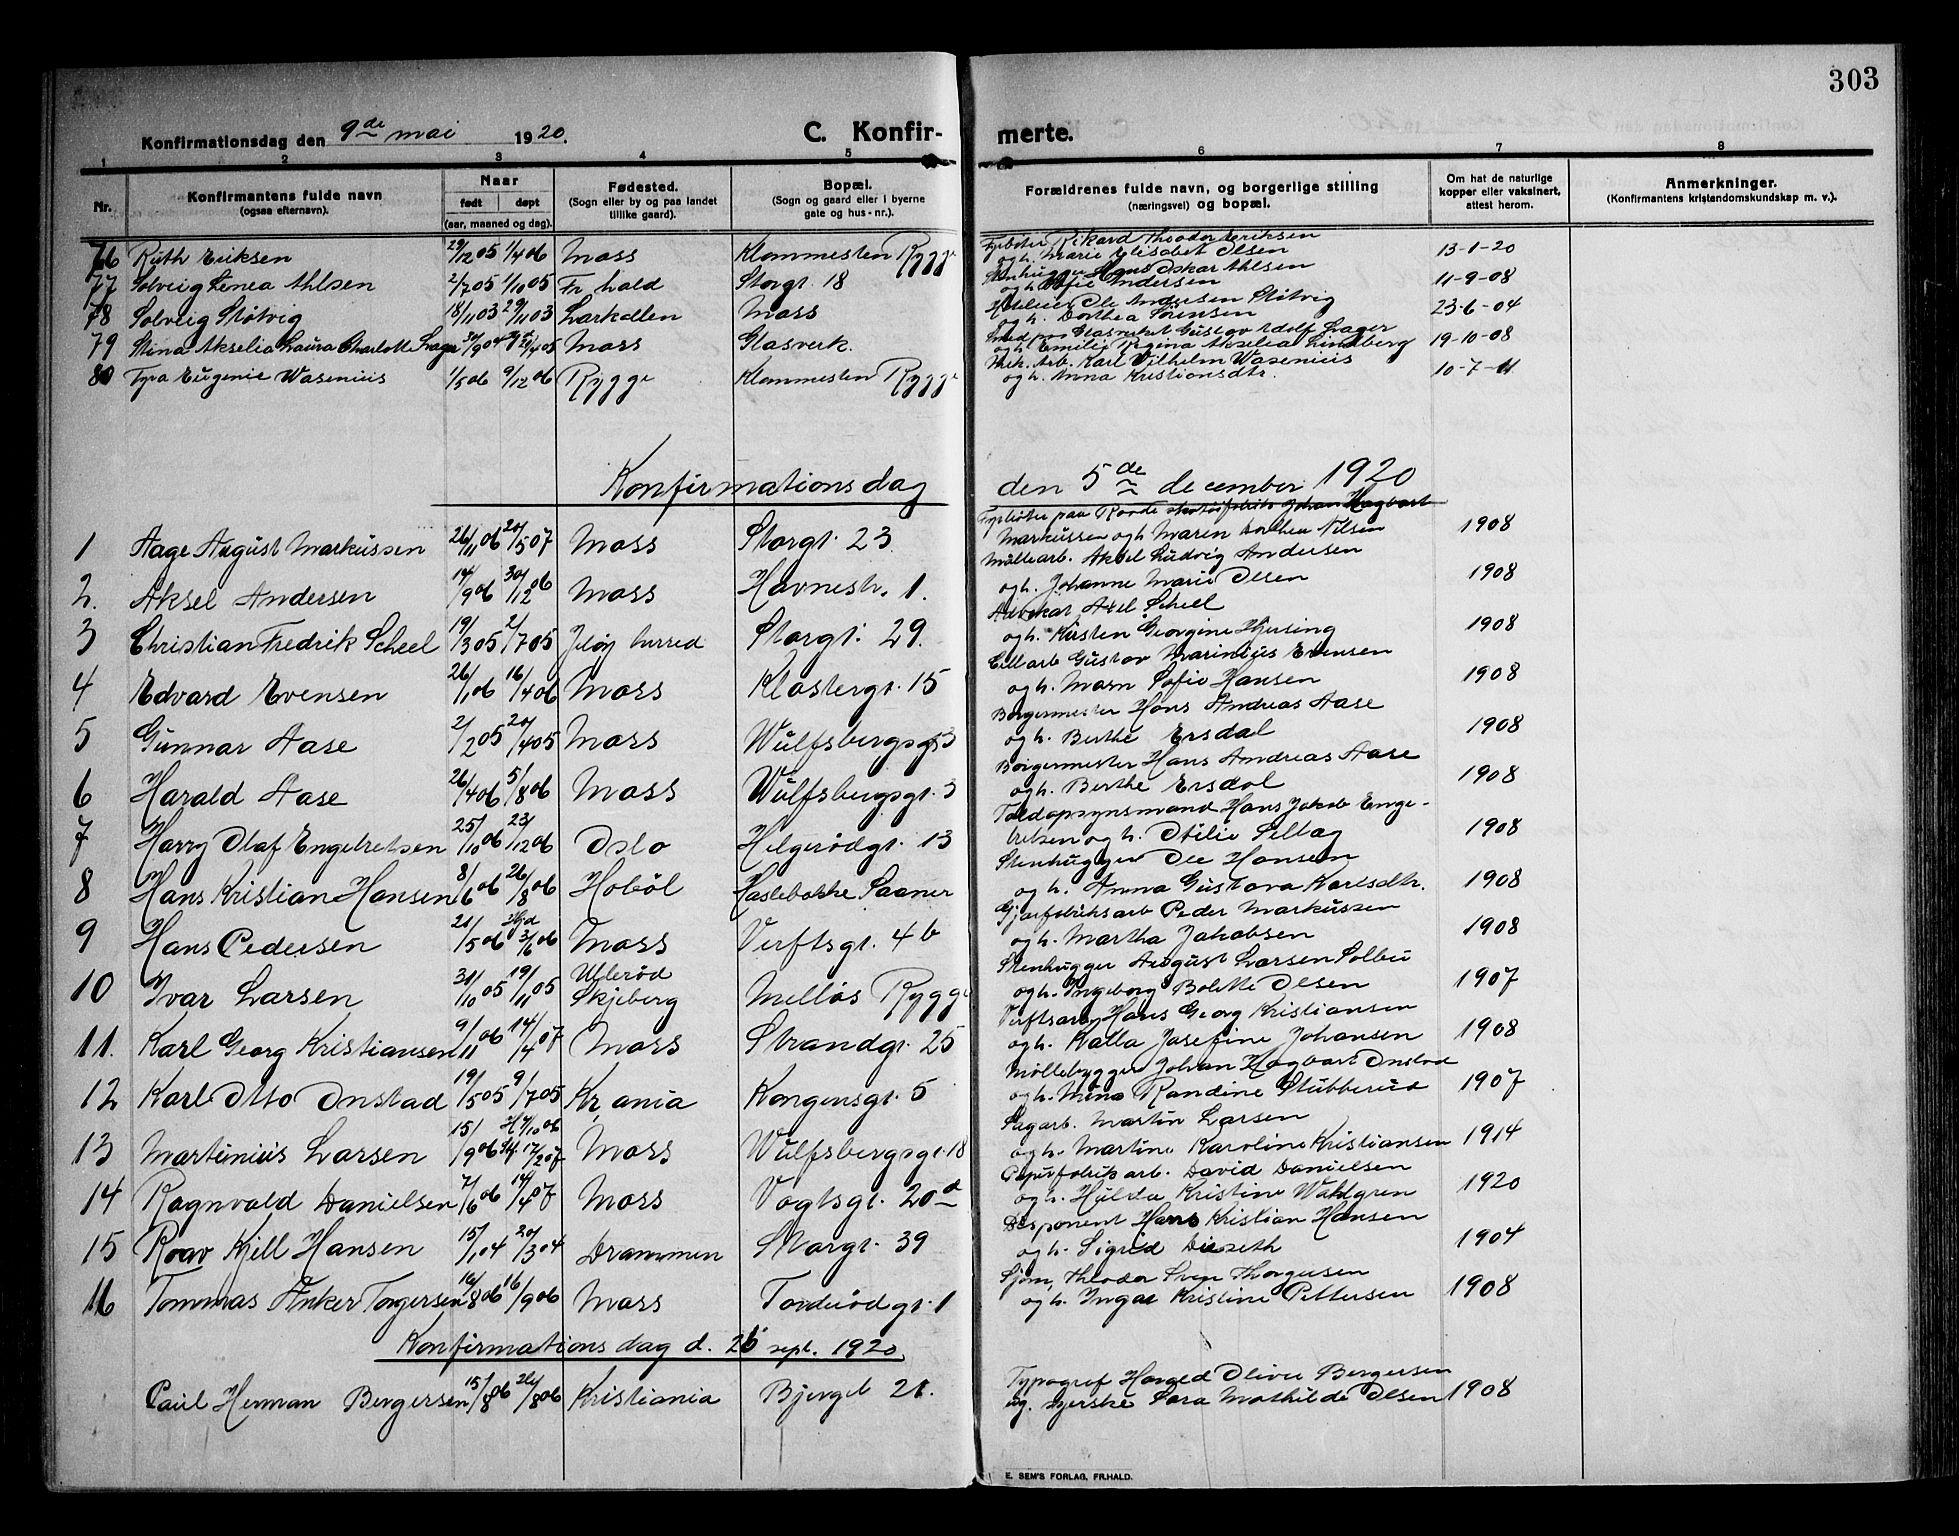 303
Konfirmationsdag den 9de mai 1920. C. Konfir- merte.
1 2 3 4 5 6 7 8
Nr. Konfirmantens fulde navn (ogsaa efternavn). Naar født døpt (aar, maaned og dag). Fødested. (Sogn eller by og paa landet tillike gaard). Bopæl. (Sogn og gaard eller i byerne gate og hus-nr.). Forældrenes fulde navn, og borgerlige stilling (næringsvei) og bopæl. Om hat de naturlige kopper eller vaksinert, attest herom. Anmerkninger. (Konfirmantens kristendomskundskap m. v.).
76 Ruth Eriksen 29/12 05 1/4 06 Moss Klommesten Rygge Fyrbøter Rikard Theodor Eriksen og h. Marie Elisabet Olsen 13-1-20
77 Solveig Linea Ahlsen 2/7 05 1/10 05 Fr. hald Storgt. 18 Stenhugger Hans Oskar Ahlsen og h. Sofie Andersen 11-9-08
78 Solveig Støtvig 18/11 03 29/11 03 Larkollen Moss Ole Andresen Støtvig og h. Dorthea Sørensen 23-6-04
79 Stina Akselia Laura Charlotte Lager Moss Glasverk. Smed paa Glasverket Gustav Adolf Lager og h. Emilie Regina Akselia Lindberg 19-10-08
80 Tyra Eugenie Wasenius 1/5 06 9/12 06 Rygge Klommesten Rygge Mek. Arb. Karl Vilhelm Wasenius og h. Anna Kristiansdtr. 10-7-11
Konfirmationsdag den 5de december 1920
1 Aage August Markussen 26/11 06 20/5 07 Moss Storgt. 23 Fyrbøter paa Johan Hagbart Markussen og h. Maren Dorthea Nilsen 1908
2. Aksel Andersen 14/9 06 30/12 06 Moss Havnestr. 1. Møllearb. Aksel Ludvig Andersen og h. Johanne Marie Olsen 1908
3 Christian Fredrik Scheel 19/3 05 2/7 05 Jeløy herred Storgt. 29. Advokat Axel Scheel og h. Kirsten Georgine Hjersing 1908
4 Edvard Evensen 26/1 06 16/4 06 Moss Klostergt. 15 Cellarb Gustav Marinius Evensen og h. Marn Sofie Hansen 1908
5 Gunnar Aase 2/2 05 20/4 05 Moss Wulfsbergsgt 3 Borgermester Hans Andreas Aase og h. Berthe Ersdal 1908
6 Harald Aase 26/4 06 5/8 06 Moss Wulfsbergsgt. 3 Borgermester Hans Andreas Aase og h. Berthe Ersdal 1908
7 Harry Olaf Engebretsen 25/10 06 23/12 06 Oslo Helgerødgt. 13 Toldopsynsmand Hans Jakob Enge- bretsen og h. Otilie Sellæg 1908
8 Hans Kristian Hansen 8/6 06 26/8 06 Hobøl Haslebakke Saaner Stenhugger Ole Hansen og h. Anna Gustava Karlsdtr. 1908
9 Hans Pedersen 21/5 06 Hjd 3/6 06 Moss Verftsgt. 4b Gjærfabriksarb Peder Markussen og h. Martha Jakobsen 1908
10 Ivar Larsen 31/10 05 19/11 05 Ullerød Skjeberg Melløs Rygge Stenhugger August Larsen Solbu og h. Ingeborg Bolette Olsen 1907
11. Karl Georg Kristiansen 9/11 06 14/4 07 Moss Strandgt. 25 Verftsarb Hans Georg Kristiansen og h. Kalla Josefine Johansen 1908
12 Karl Otto Onstad 19/5 05 9/7 05 Kr. ania Kongensgt. 5 Møllebygger Johan Hagbart Onstad og h. Mina Randine Stubberud 1907
13 Martinius Larsen 15/9 06 17/2 07 Moss Wulfsbergsgt. 18 Sagarb. Martin Larsen og h. Martine Karoline Kristiansen 1914
14 Ragnvald Danielsen 7/6 06 14/4 07 Moss Vogtsgt. 20d Papirfabrikarb. David Danielsen og h. Hulda Kristine Wahlgren 1920
15 Roar Kjell Hansen 15/1 04 20/3 04 Drammen Storgt. 39 Disponent Hans Kristian Hansen og h. Sigrid Diseth 1904
16 Tommas Anker Torgersen 16/8 06 16/9 06 Moss Torderødgt. 1 Sjøm. Theodor Sven Thorgersen og h. Inga Kristine Pettersen 1908
Konfirmationsdag d. 26 sept. 1920.
Paul Herman Bergersen 15/8 06 26/8 06 Kristiania Bjerget 21. Typograf Harald Oliver Bergersen og syerske Sara Mathilde Olsen 1908
E. SEM'S FORLAG, FR.HALD.